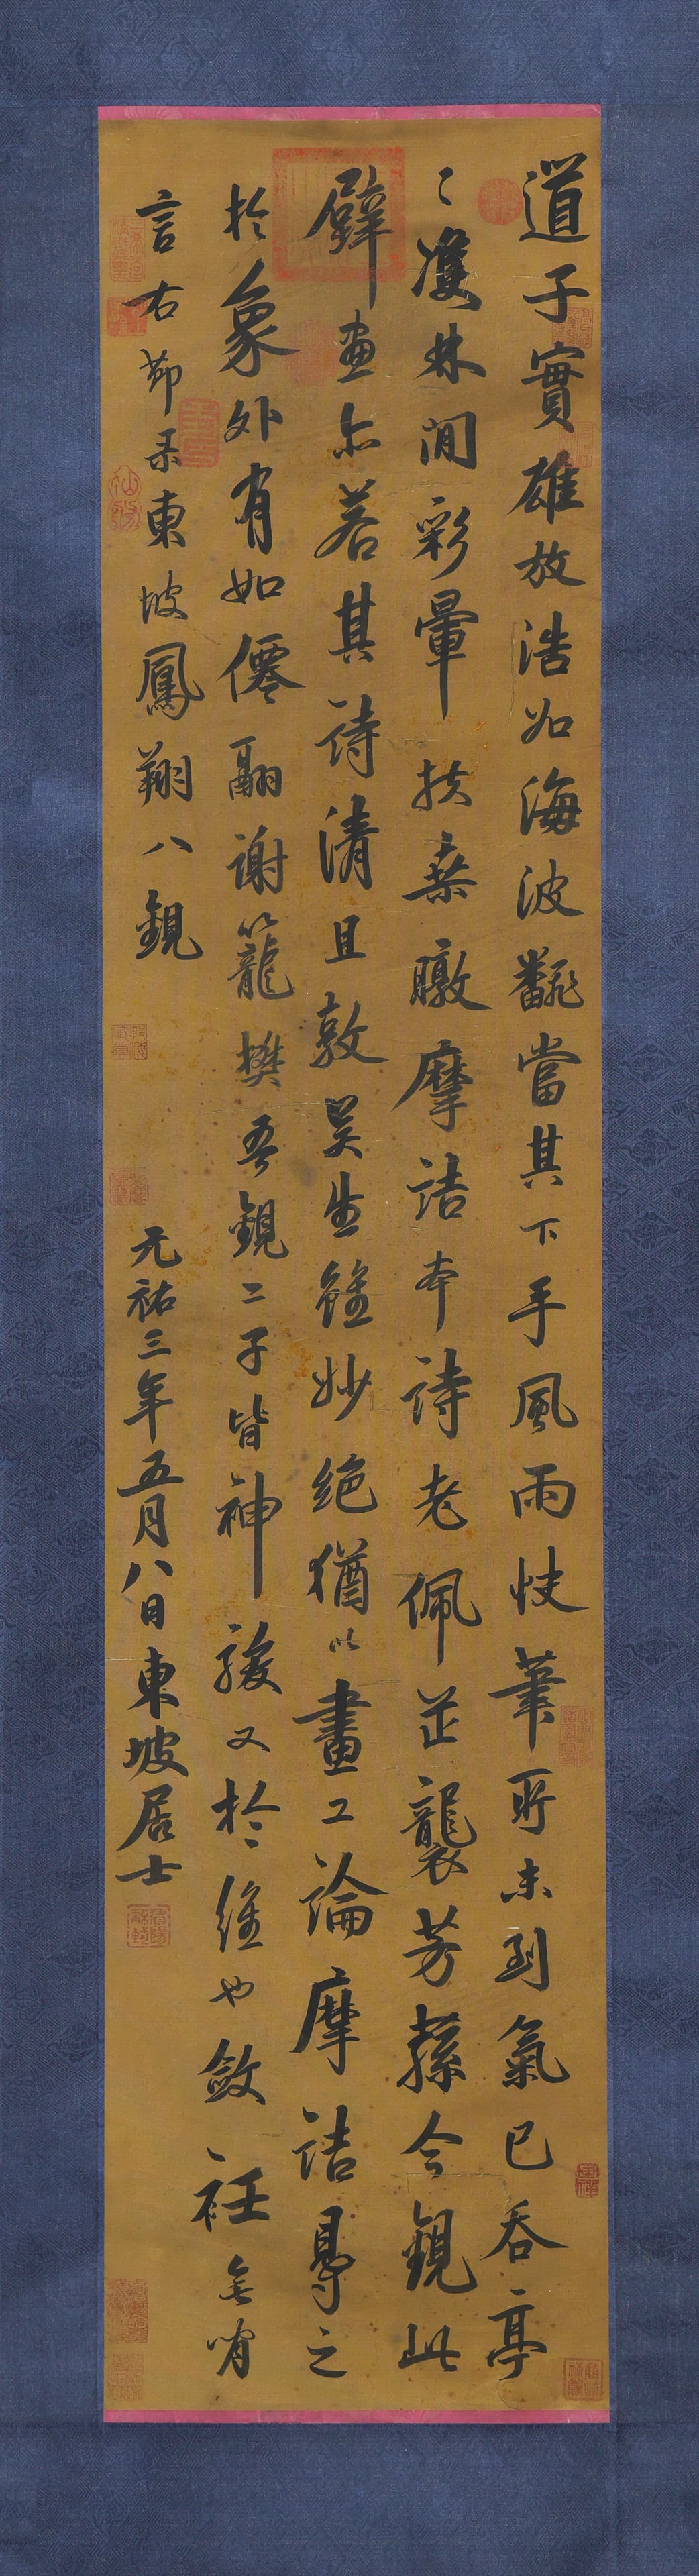 道子實雄放浩如海波飜當其下手風雨快筆所未到氣已吞亭
〻雙林閒彩暈扶桒暾摩詰本詩老佩芷襲芳蓀今觀此
壁畫亦若其詩清且敦吴生雖妙絶猶以畫工論摩詰得之
於象外有如僊翮謝籠樊吾觀二子皆神駿又於維也斂衽無間
言右節录東坡鳳翔八觀
元祐三年五月八日東坡居士